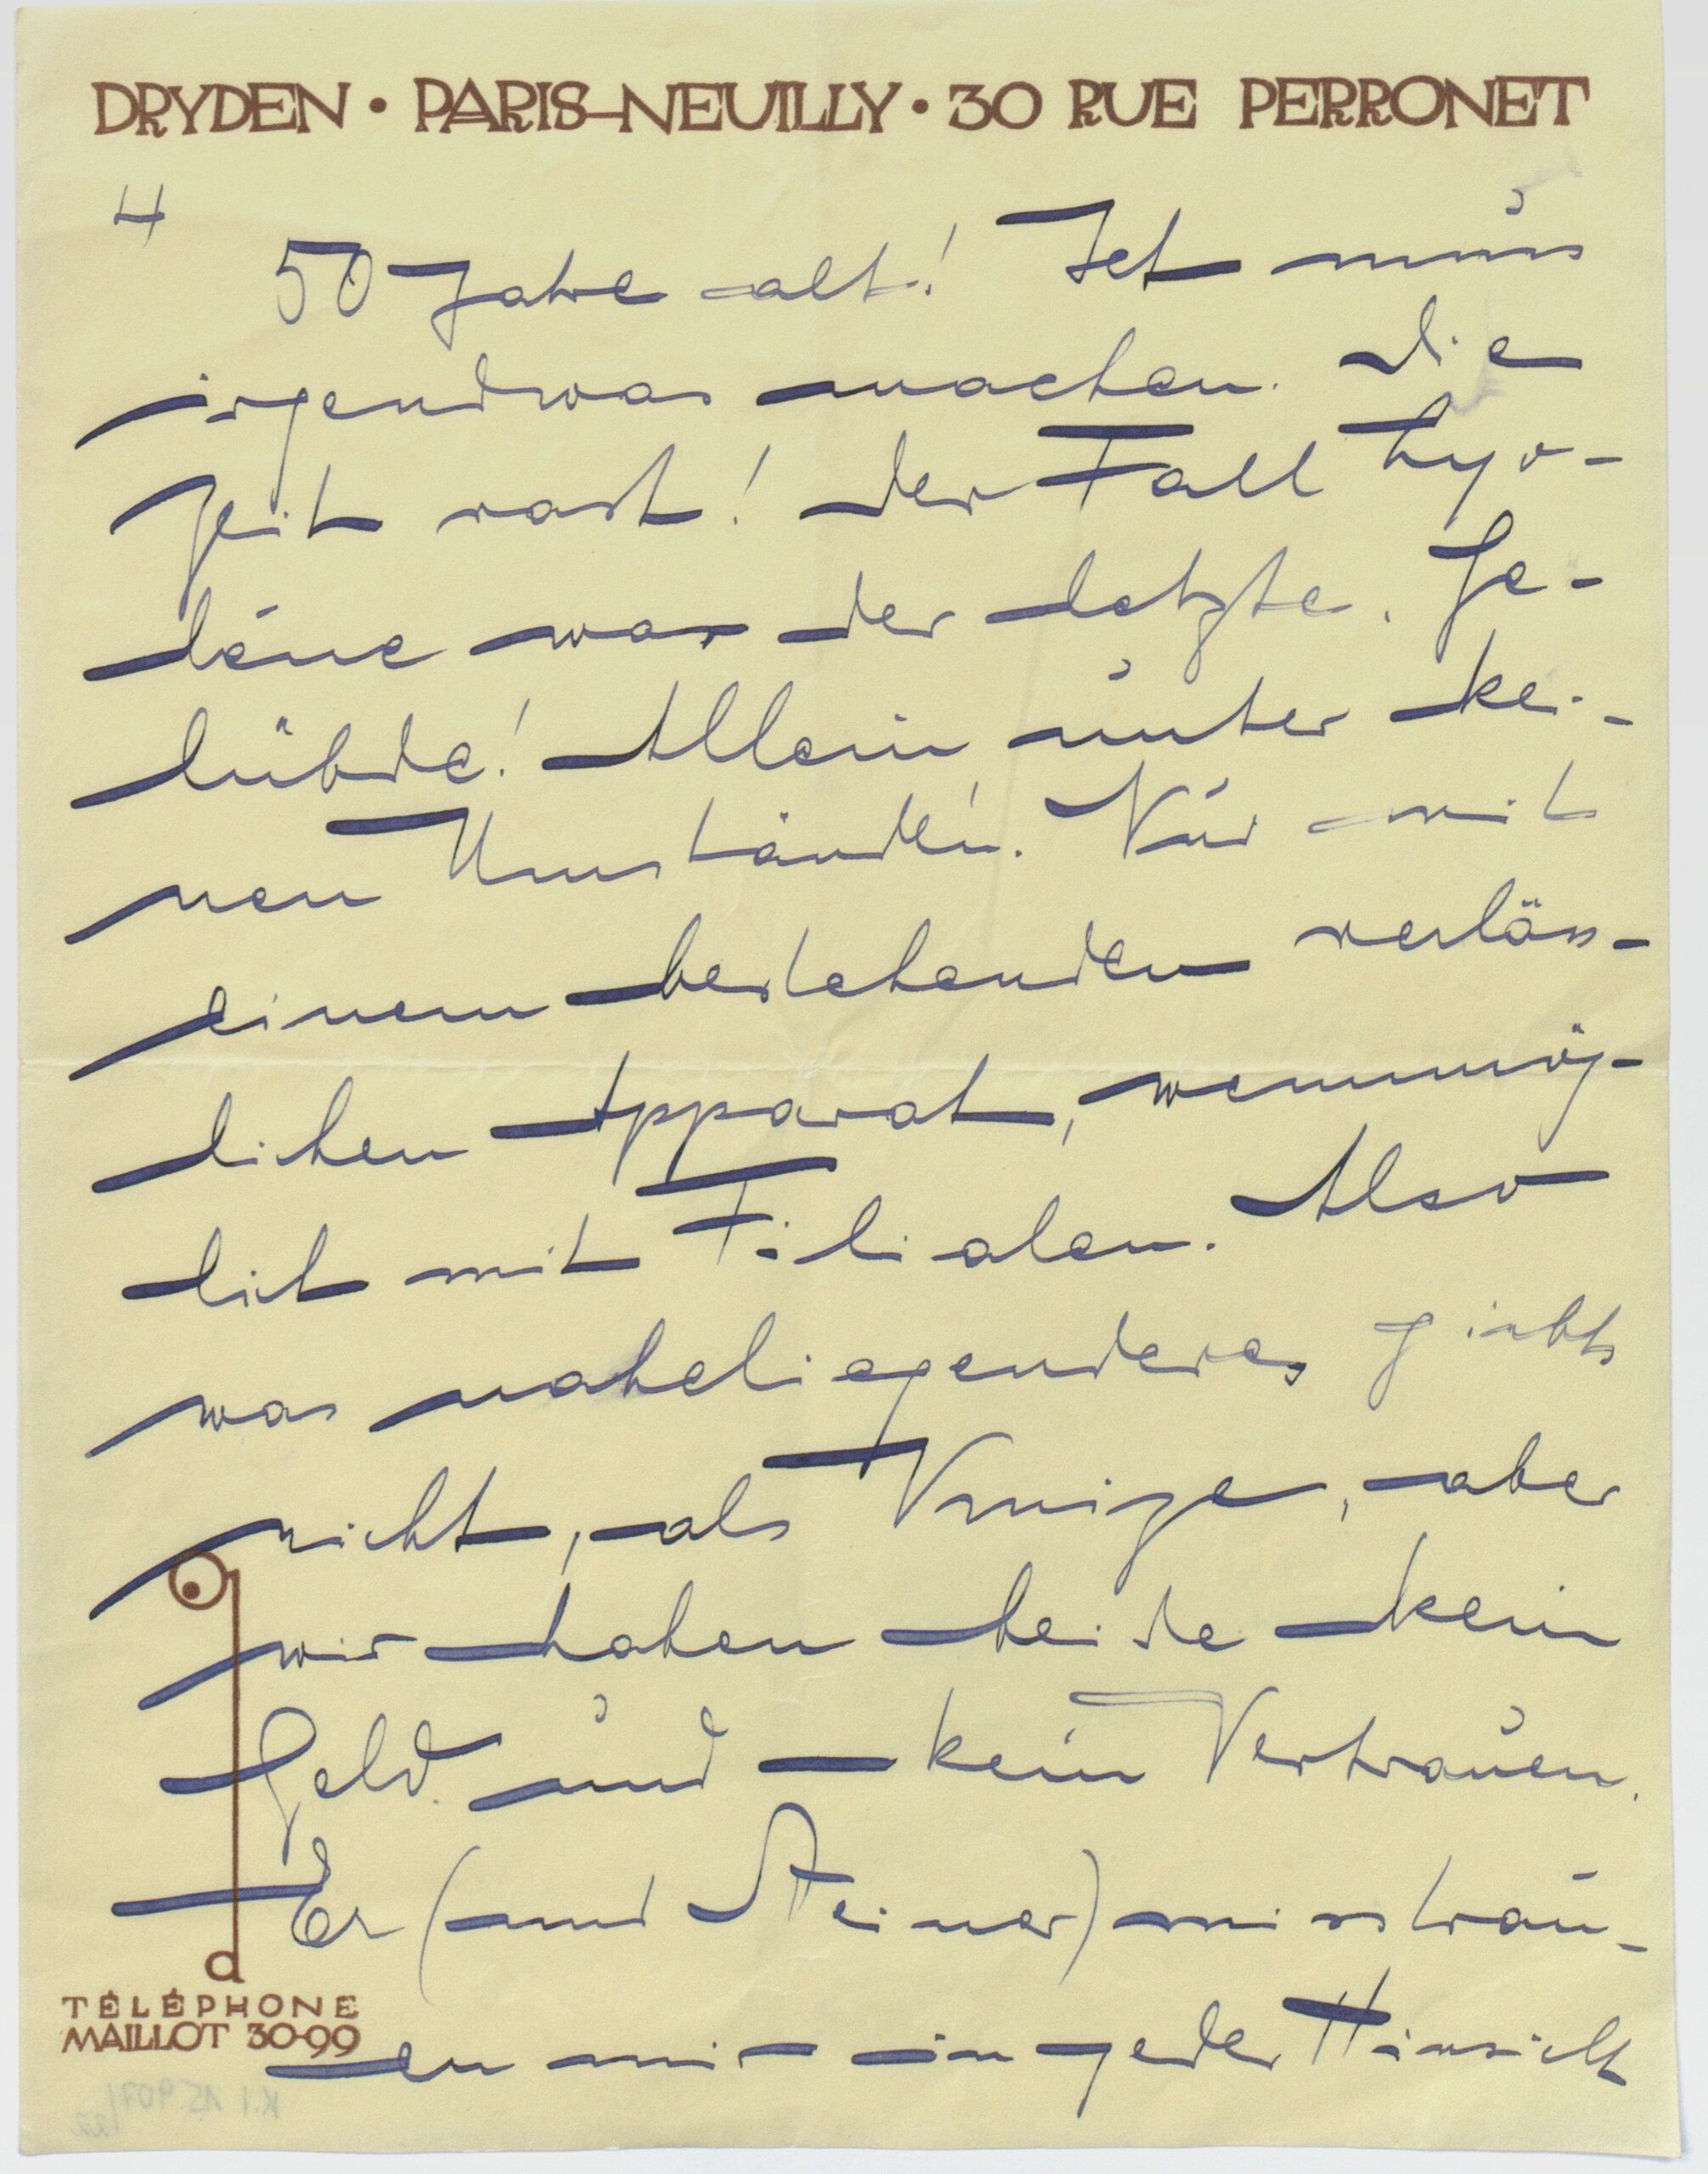 DRYDEN • PARIS–NEUILLY • 30 RUE PERRONET
4
50 Jahre alt! Ich muss
irgendwas machen. Die
Zeit rast! Der Fall Hyo-
léne war der letzte. Ge-
lübde! Allein unter kei-
nen Umständen. Nur mit
einem bestehenden verläss-
lichen Apparat, wenmmög-
lich mit Filialen. Also
was naheliegenderes giebts
nicht, als Knize, aber
wir haben beide kein
Geld und kein Vertrauen.
Er (und Steiner) misstrau-
en mir in jeder Hinsicht
d
TÉLÉPHONE
MAILLOT 30-99